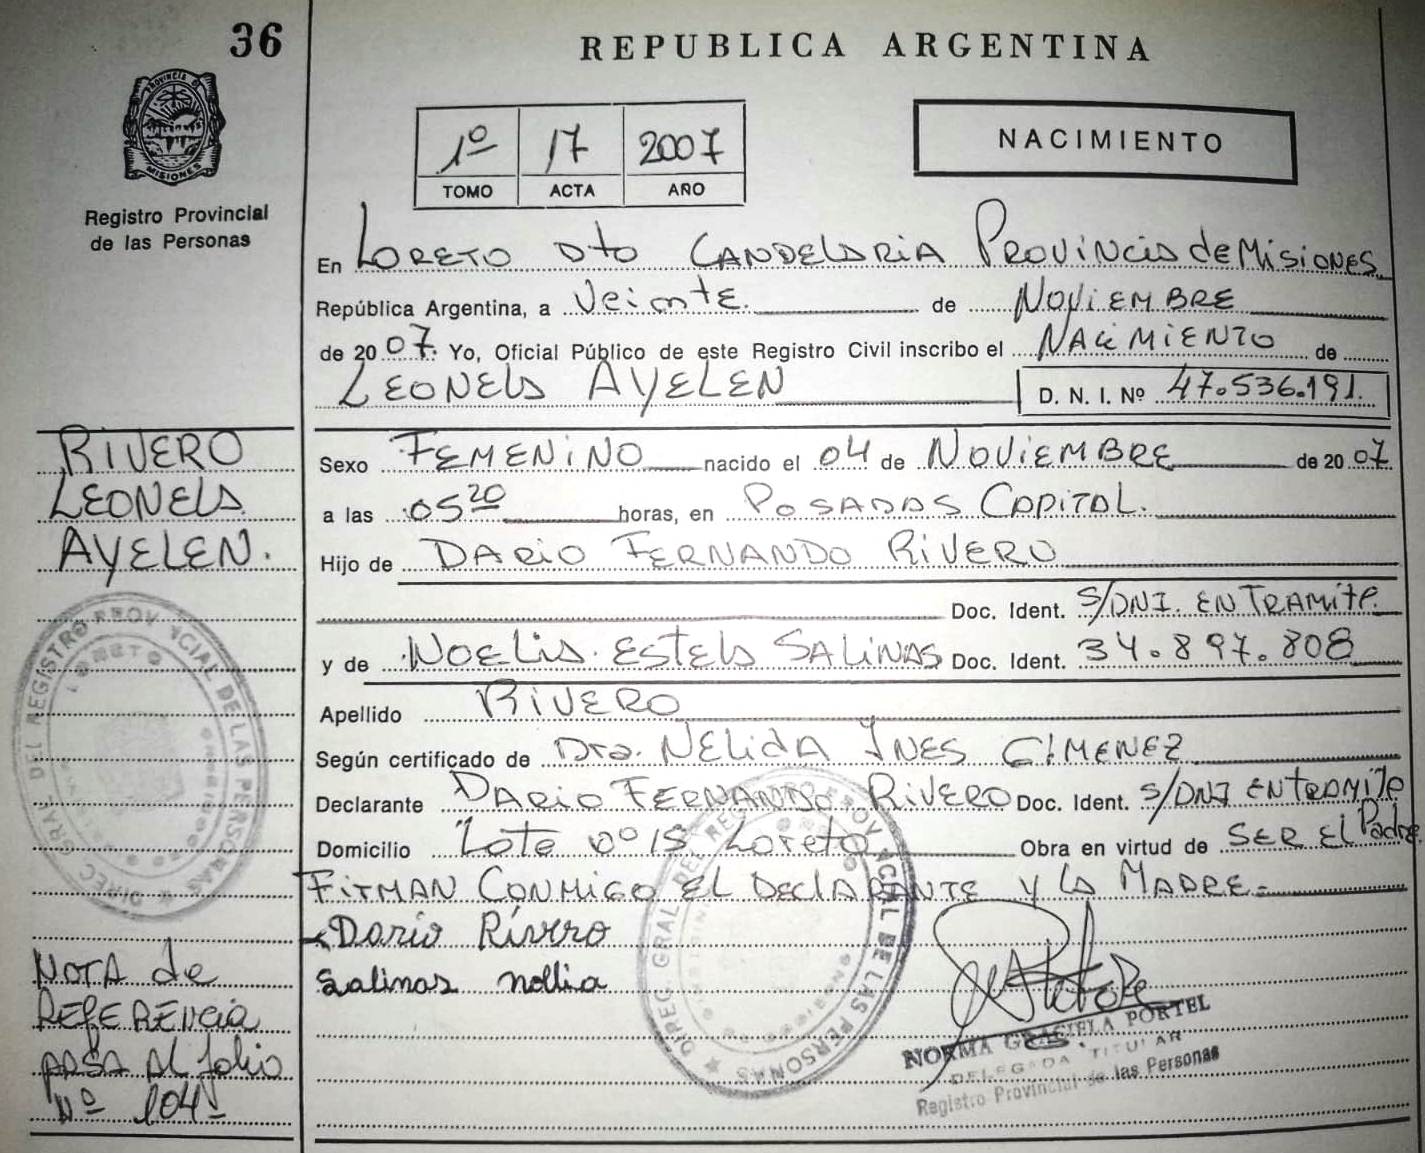 36
REPUBLICA ARGENTINA
PROVINCIA DE
MISIONES
Registro Provincial
de las Personas
1º 17 2007
TOMO ACTA AÑO
NACIMIENTO
En LORETO Dto CANDELARIA PROVINCIA de MISIONES
República Argentina, a Veinte de NOVIEMBRE
de 2007. Yo, Oficial Público de este Registro Civil inscribo el NACIMIENTO de
LEONELA AYELEN D. N. I. Nº 47.536.191.
RIVERO
LEONELA
AYELEN.
Sexo FEMENINO nacido el 04 de NOVIEMBRE de 2007
a las 05 20 horas, en POSADAS CAPITAL.
Hijo de DARIO FERNANDO RIVERO
Doc. Ident. S/DNI. EN TRAMITE
y de NOELIA ESTELA SALINAS Doc. Ident. 34.897.808
Apellido RIVERO
Según certificado de Dra. NELIDA INES GIMENEZ
Declarante DARIO FERNANDO RIVERO Doc. Ident. S/DNI EN TRAMITE
Domicilio Lote nº 15 Loreto Obra en virtud de SER EL Padre
FIRMAN CONMIGO EL DECLARANTE y LA MADRE=
Dario Rivero
Salinas
NOTA de
REFERENCIA
PASA AL folio
Nº 104
DIREC. GRAL. DEL REGISTRO PROVINCIAL DE LAS PERSONAS
LORETO
DIREC. GRAL. DEL REGISTRO PROVINCIAL DE LAS PERSONAS
NORMA GRACIELA PORTEL
DELEGADA TITULAR
Registro Provincial de las Personas